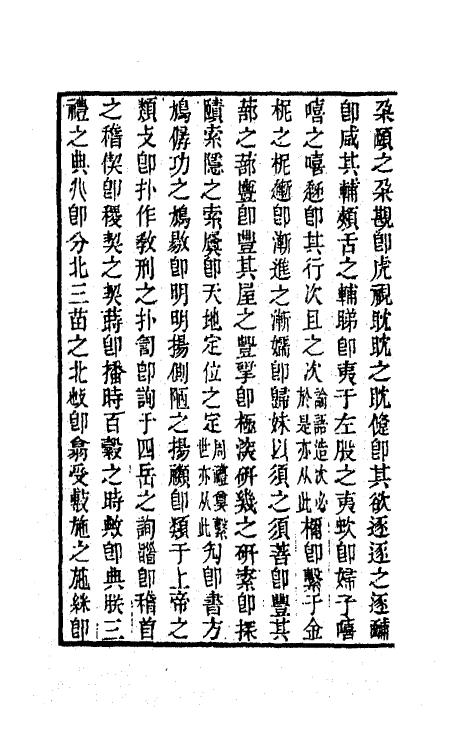 朶頤之朶卽虎視眈眈之眈儵卽其欲逐逐之逐
卽咸其輔頰舌之輔睇卽夷于左股之夷卽婦子嘻
嘻之嘻趑卽其行次且之次論語造次必於是亦从此檷卽繫于金
柅之柅卽漸進之漸嬬卽歸妹以須之須菩卽豐其
蔀之蔀卽豐其屋之豐揅卽極深研幾之研索卽探
賾索隱之索奠卽天地定位之定周禮奠繫世亦从此勼卽書方
鳩僝功之鳩敭卽明明揚側陋之揚禷卽類于上帝之
類攴卽扑作敎刑之扑訇卽詢于四岳之詢䭫卽稽首
之稽偰卽稷契之契蒔卽播時百穀之時敟卽典朕三
禮之典卽分北三苗之北卽翕受敷施之施絑卽